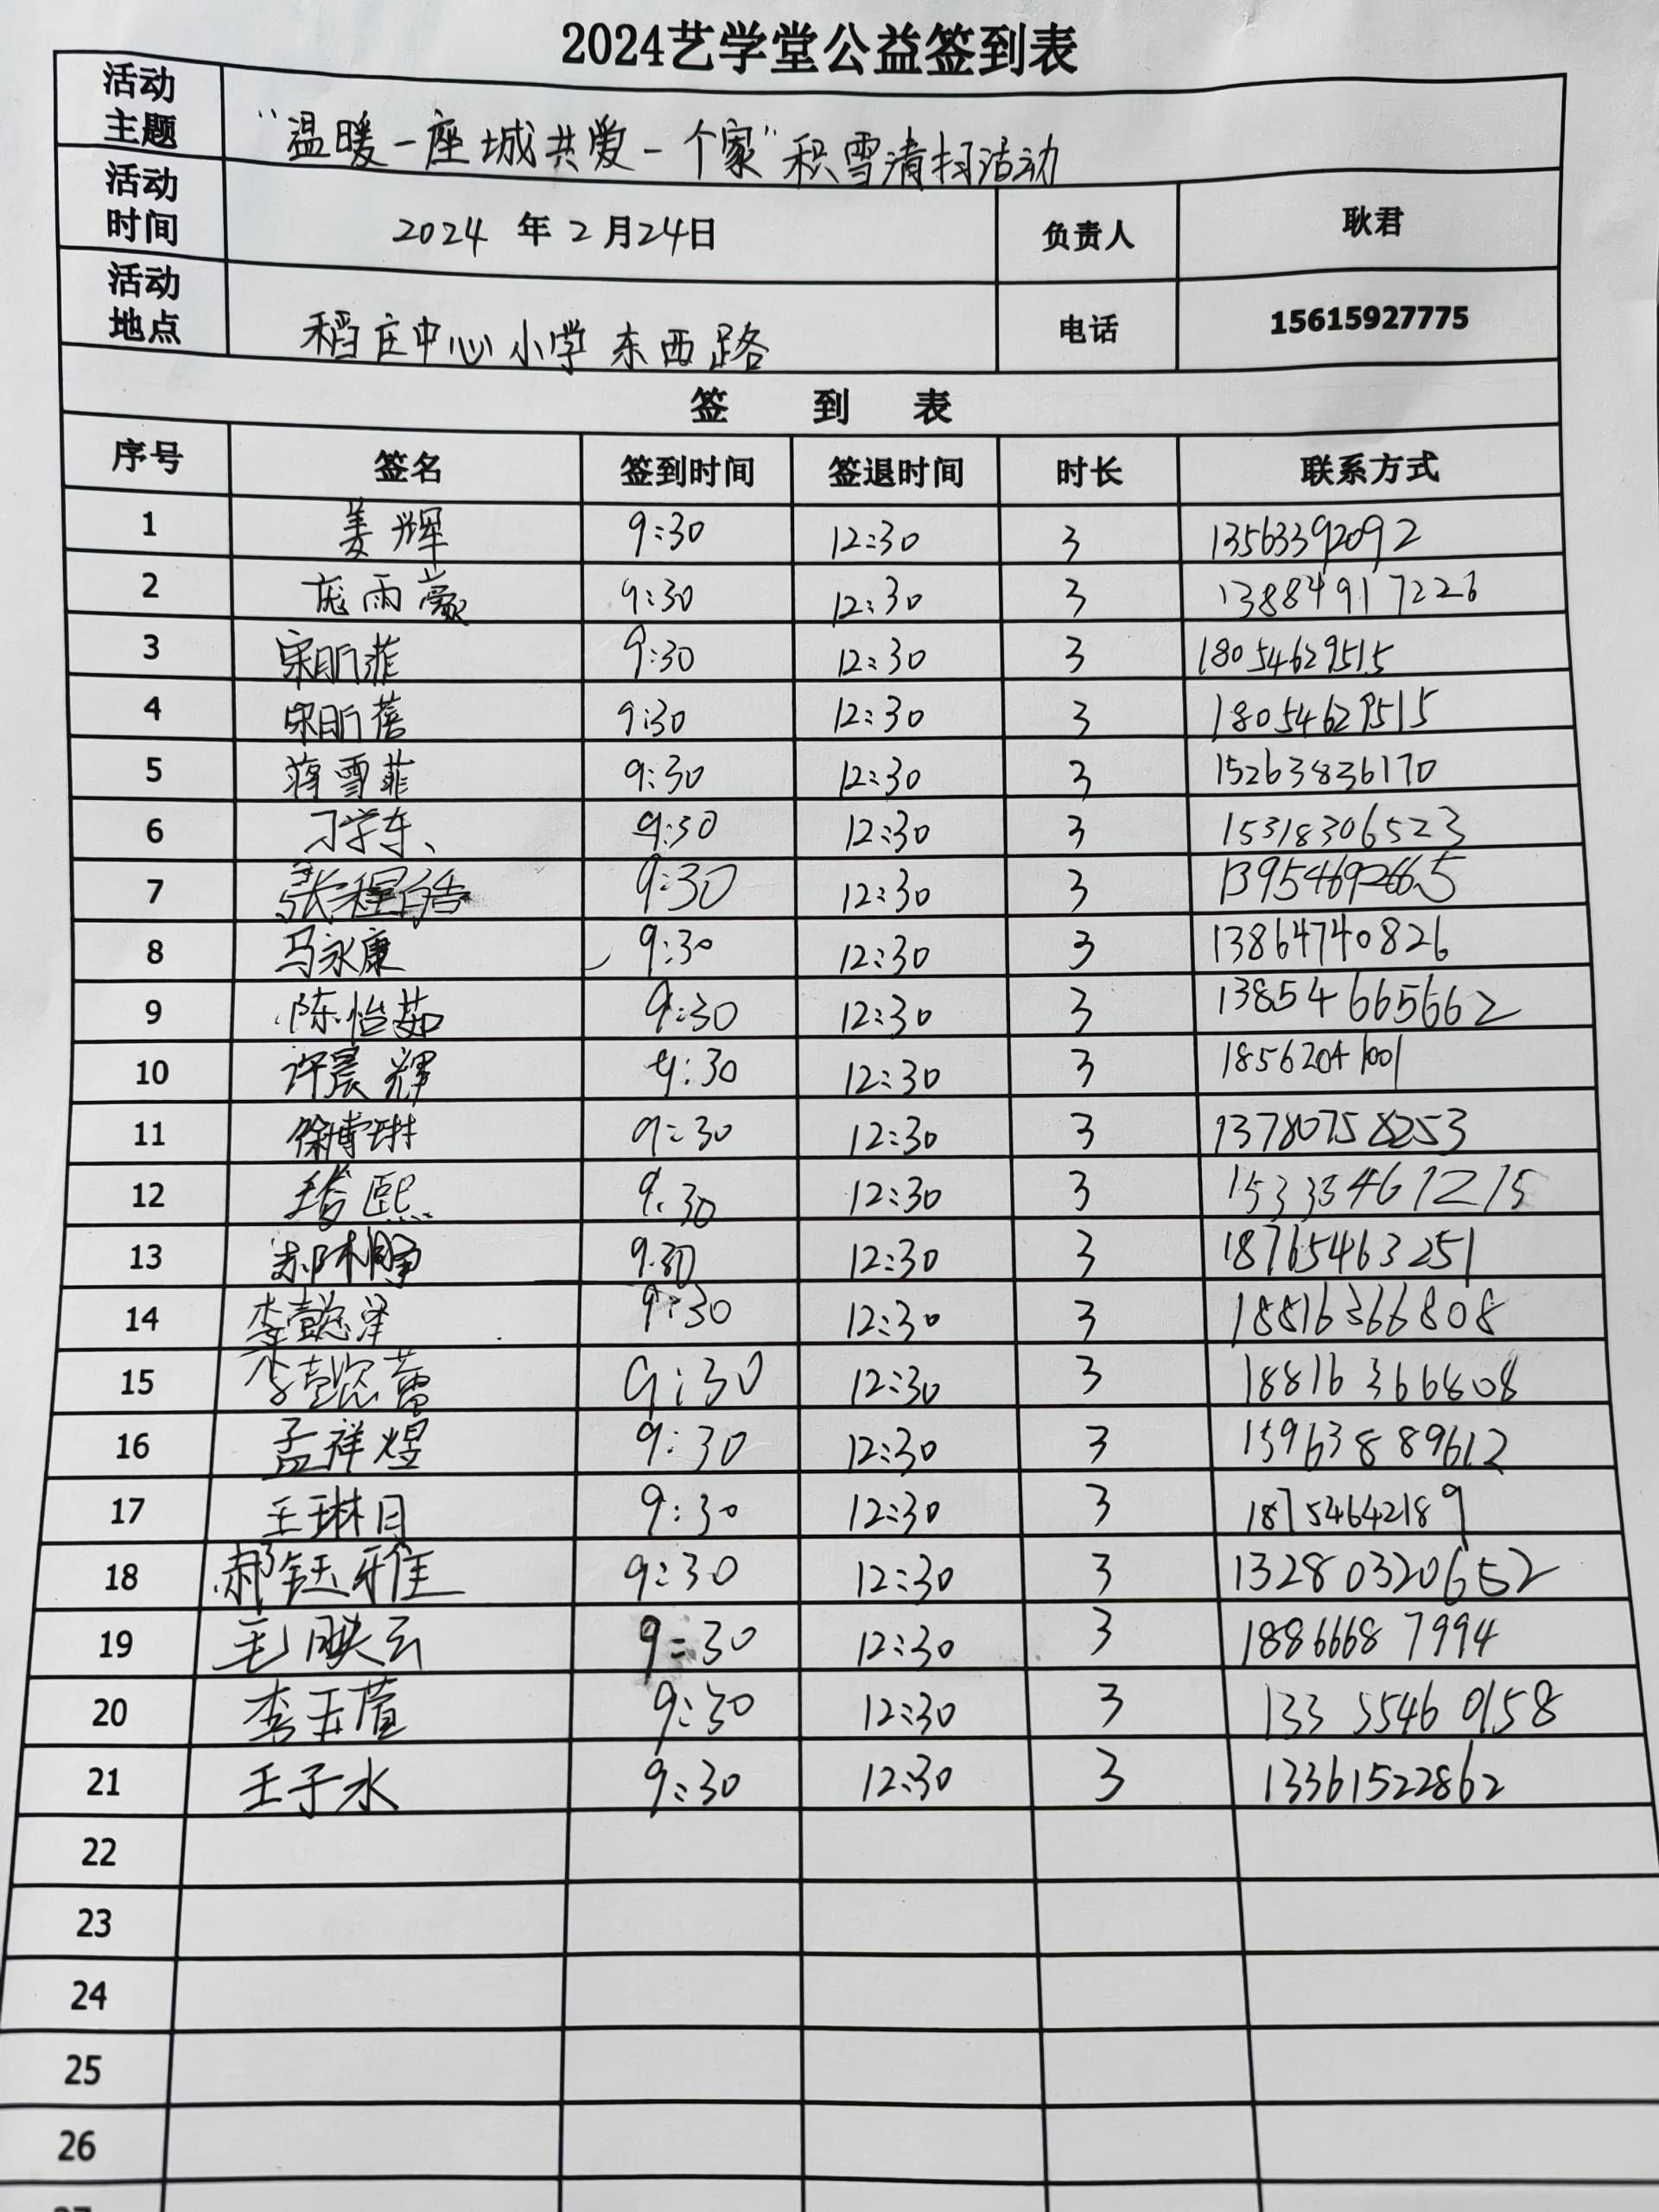 2024艺学堂公益签到表
活动主题 “温暖一座城共爱一个家”积雪清扫活动
活动时间 2024 年 2 月 24 日 负责人 耿君
活动地点 稻庄中心小学东西路 电话 15615927775
签 到 表
序号 签名 签到时间 签退时间 时长 联系方式
1 姜辉 9:30 12:30 3 13563392092
2 庞雨豪 9:30 12:30 3 13884917226
3 宋昕菲 9:30 12:30 3 18054629515
4 宋昕蓓 9:30 12:30 3 18054629515
5 蒋雪菲 9:30 12:30 3 15263836170
6 刁学东 9:30 12:30 3 15318306523
7 张程皓 9:30 12:30 3 13954692665
8 马永康 9:30 12:30 3 13864740826
9 陈怡茹 9:30 12:30 3 13854665662
10 许晨辉 9:30 12:30 3 18562041001
11 徐博琳 9:30 12:30 3 13780758253
12 熙 9:30 12:30 3 15335461215
13 郝 9:30 12:30 3 18765463251
14 李懿泽 9:30 12:30 3 18816366808
15 李懿蕾 9:30 12:30 3 18816366808
16 孟祥煜 9:30 12:30 3 15963889612
17 王琳月 9:30 12:30 3 18754642189
18 郝钰雅 9:30 12:30 3 13280320652
19 毛映云 9:30 12:30 3 18866687994
20 李玉萱 9:30 12:30 3 133 5546 0158
21 王子水 9:30 12:30 3 13361522862
22
23
24
25
26